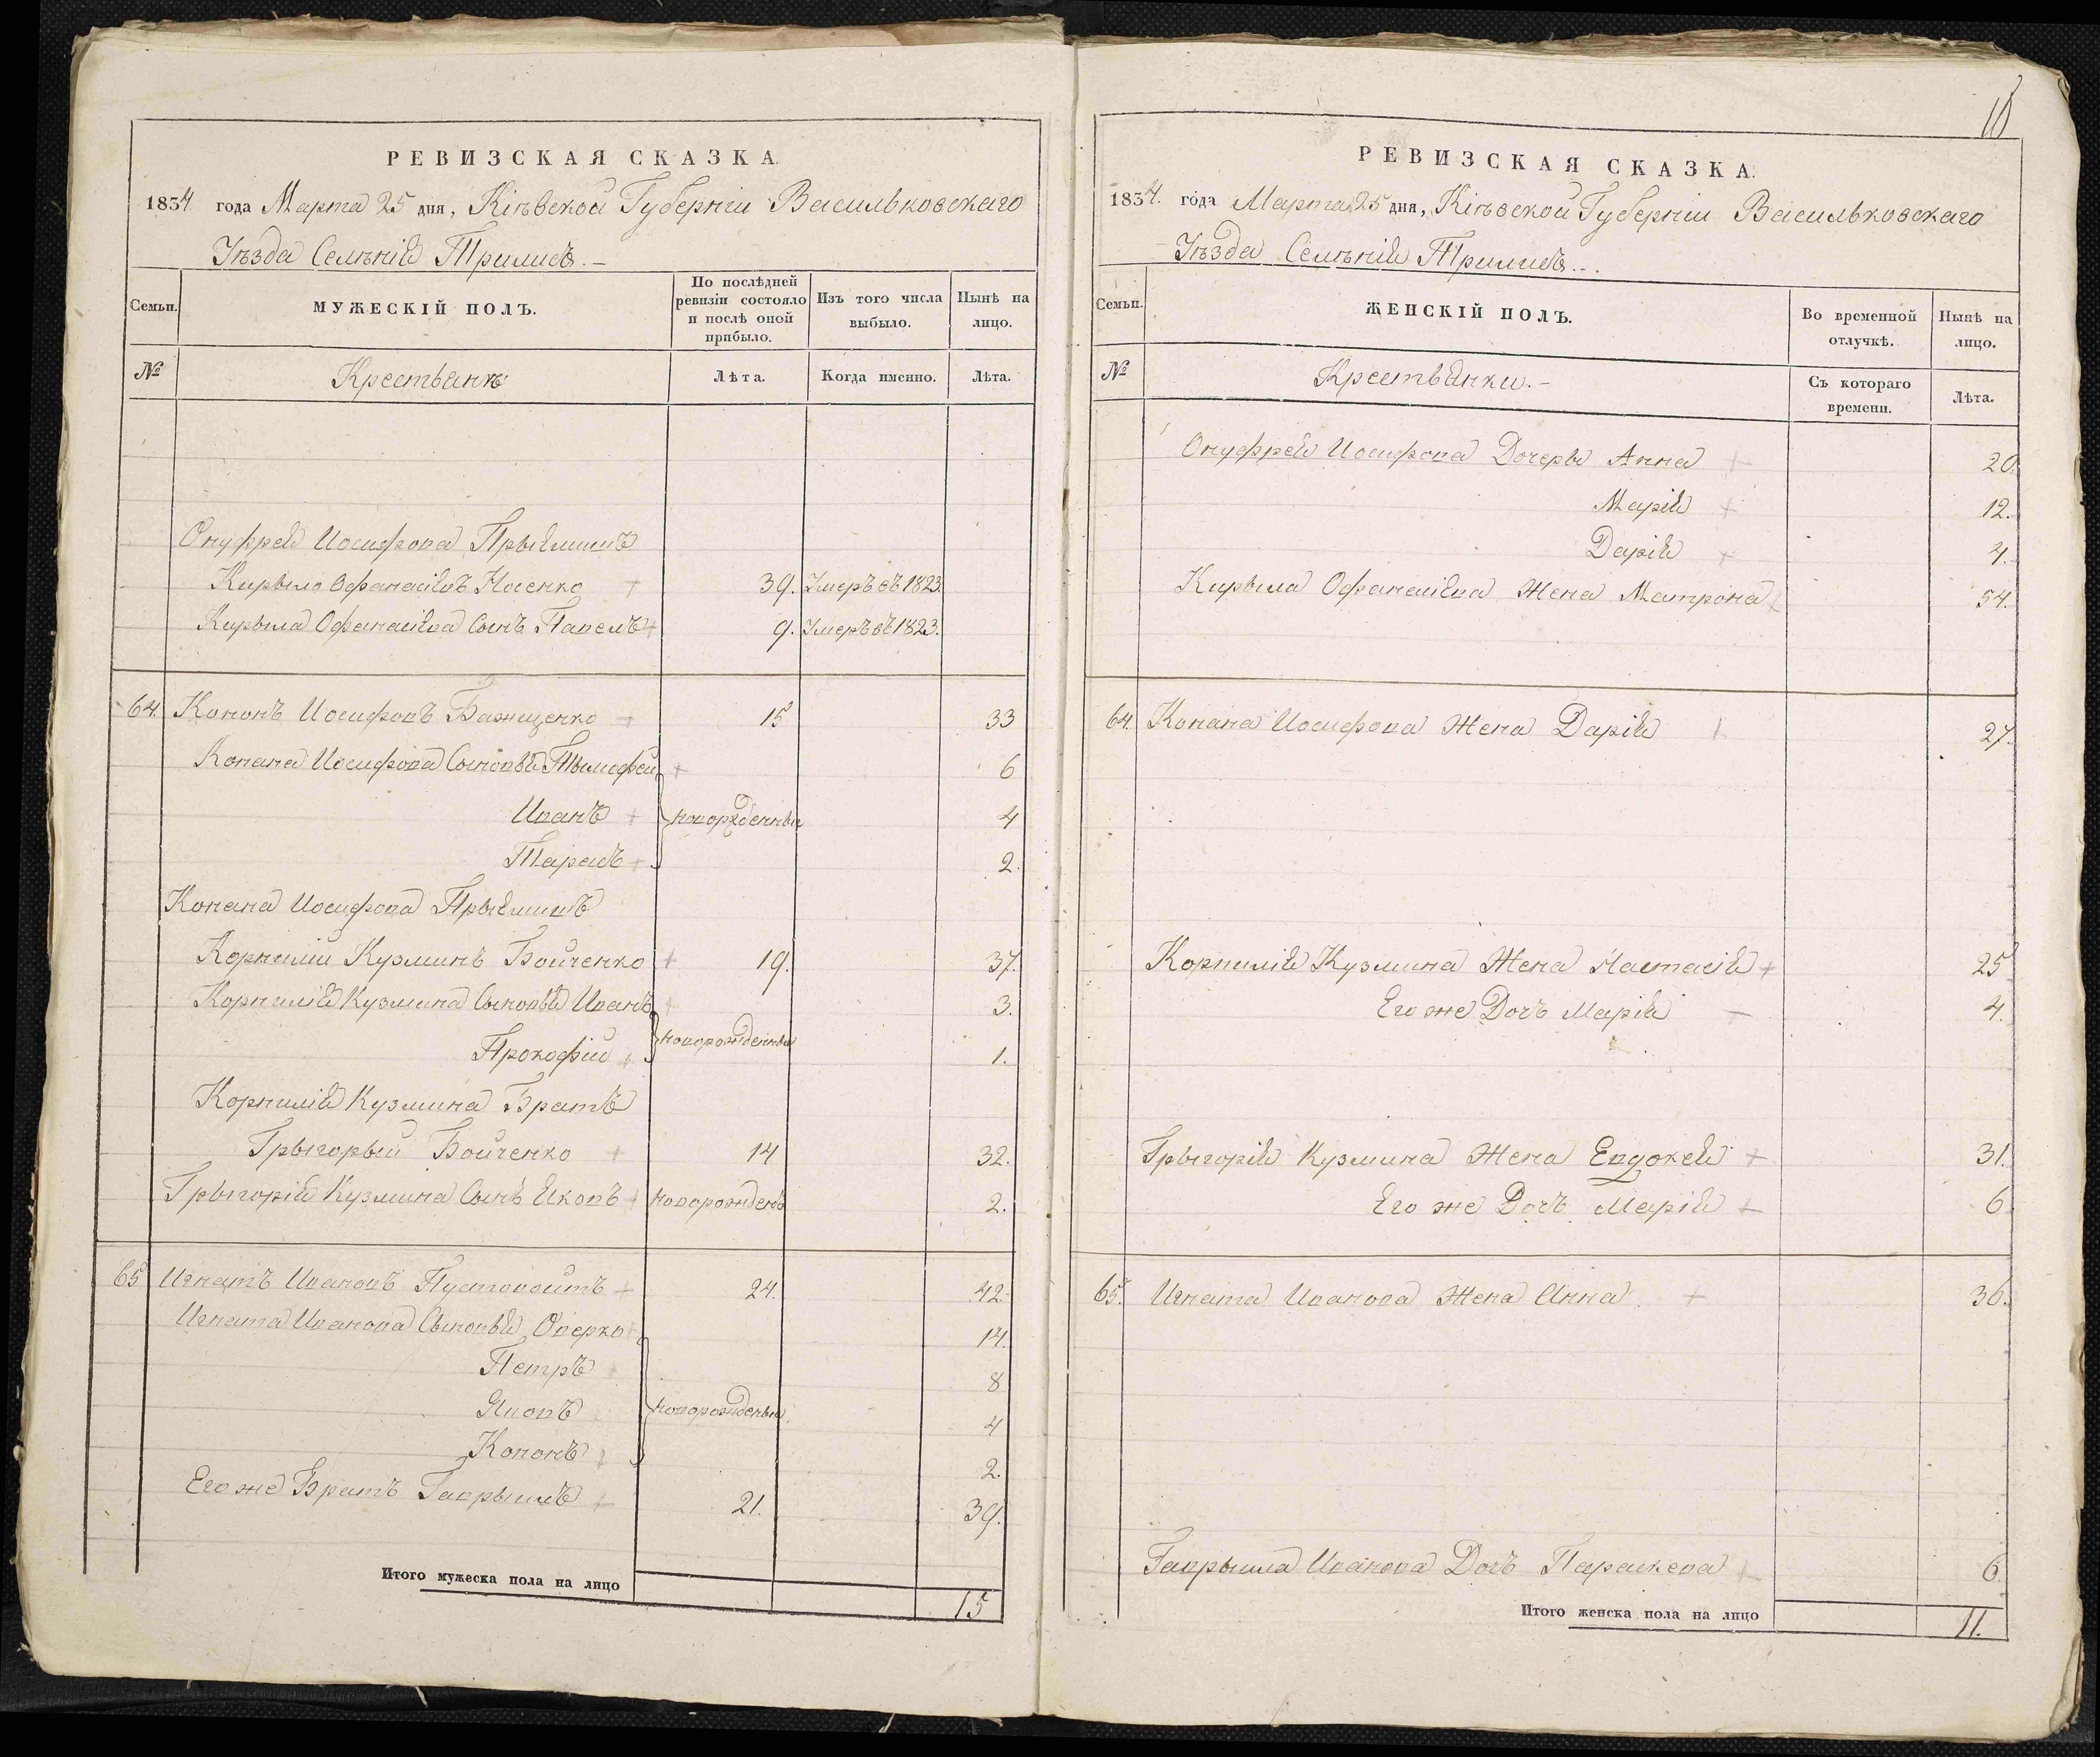 РЕВИЗСКАЯ СКАЗКА.
1834. года Марта 25 дня, Кіевской Губерніи Васильковскаго
Уѣзда Селенія Трилисъ. –
Семьи.
МУЖЕСКІЙ ПОЛЪ.
По послѣдней ревизіи состояло и послѣ оной прибыло.
Изъ того числа выбыло.
Нынѣ на лицо.
№
Крестьяне
Лѣта.
Когда именно.
Лѣта.
Онуфрея Иосифова Прыймишъ
Кирыло Офанасіевъ Носенко + 39. Умеръ въ 1823.
Кирыла Офанасіева Сынъ Павелъ + 9. Умеръ въ 1823.
64. Кононъ Иосифовъ Бажщенко + 15 33
Конана Иосифова Сыновья Тымофей + 6
Иванъ + новорожденныи 4
Тарасъ + 2.
Конана Иосифова Прыймишъ
Корнилій Кузминъ Бойченко + 19. 37.
Корнилія Кузмина Сыновья Иванъ + 3.
Прокофій + новорожденныи 1.
Корнилія Кузмина Братъ
Грыгорый Бойченко + 14 32.
Грыгорія Кузмина Сынъ Яковъ + новорожденъ 2.
65 Игнатъ Ивановъ Пустовойтъ + 24. 42.
Игната Иванова Сыновья Оверко 14.
Петръ 8
Яковъ новорожденныи 4
Кононъ 2.
Его же Братъ Гаврыилъ + 21. 39.
Итого мужеска пола на лицо 15
10
РЕВИЗСКАЯ СКАЗКА.
1834. года Марта 25 дня, Кіевской Губерніи Васильковскаго
Уѣзда Селенія Трилисъ. –
Семьи.
ЖЕНСКІЙ ПОЛЪ.
Во временной отлучкѣ.
Нынѣ на лицо.
№
Крестьянки. –
Съ котораго времени.
Лѣта.
Онуфрея Иосифова Дочеры Анна + 20.
Марія + 12.
Дарія + 4.
Кирыла Офанасіева Жена Матрона + 54.
64. Конана Иосифова Жена Дарія + 27.
Корнилія Кузмина Жена Настасія + 25
Его же Дочъ Марія – 4.
Грыгорія Кузмина Жена Евдокея + 31.
Его же Дочъ Марія + 6
65. Игната Иванова Жена Анна + 36.
Гаврыила Иванова Дочъ Параскева + 6.
Итого женска пола на лицо 11.